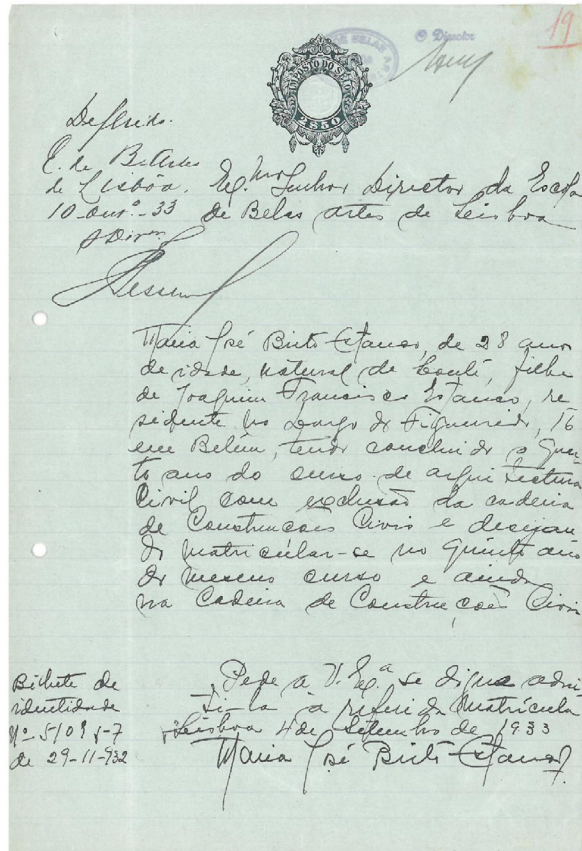 19
O Director
IMPOSTO DO SELO
2$50
Deferido.
E. de B. Artes
de Lisbôa.
10 Out.º-33
O Dir.
Ex.mo Senhor Director da Escola
de Belas Artes de Lisboa
Maria José Brito Estanco, de 28 anos
de idade, natural de Loulé, filha
de Joaquim Francisco Estanco, re
sidente no Largo do Figueiredo, 16
em Belém, tendo concluido o quar
to ano do curso de arquitectura
Civil com exclusão da cadeira
de Construcções Civis e desejan
do matricular-se no quinto ano
do mesmo curso e ainda
na Cadeira de Construcções Civis
Pede a V. Ex.ª se digne admi
ti-la à referida Matricula
Lisboa 4 de Setembro de 1933
Maria José Brito Estanco
Bilhete de
identidade
Nº
de 29-11-932